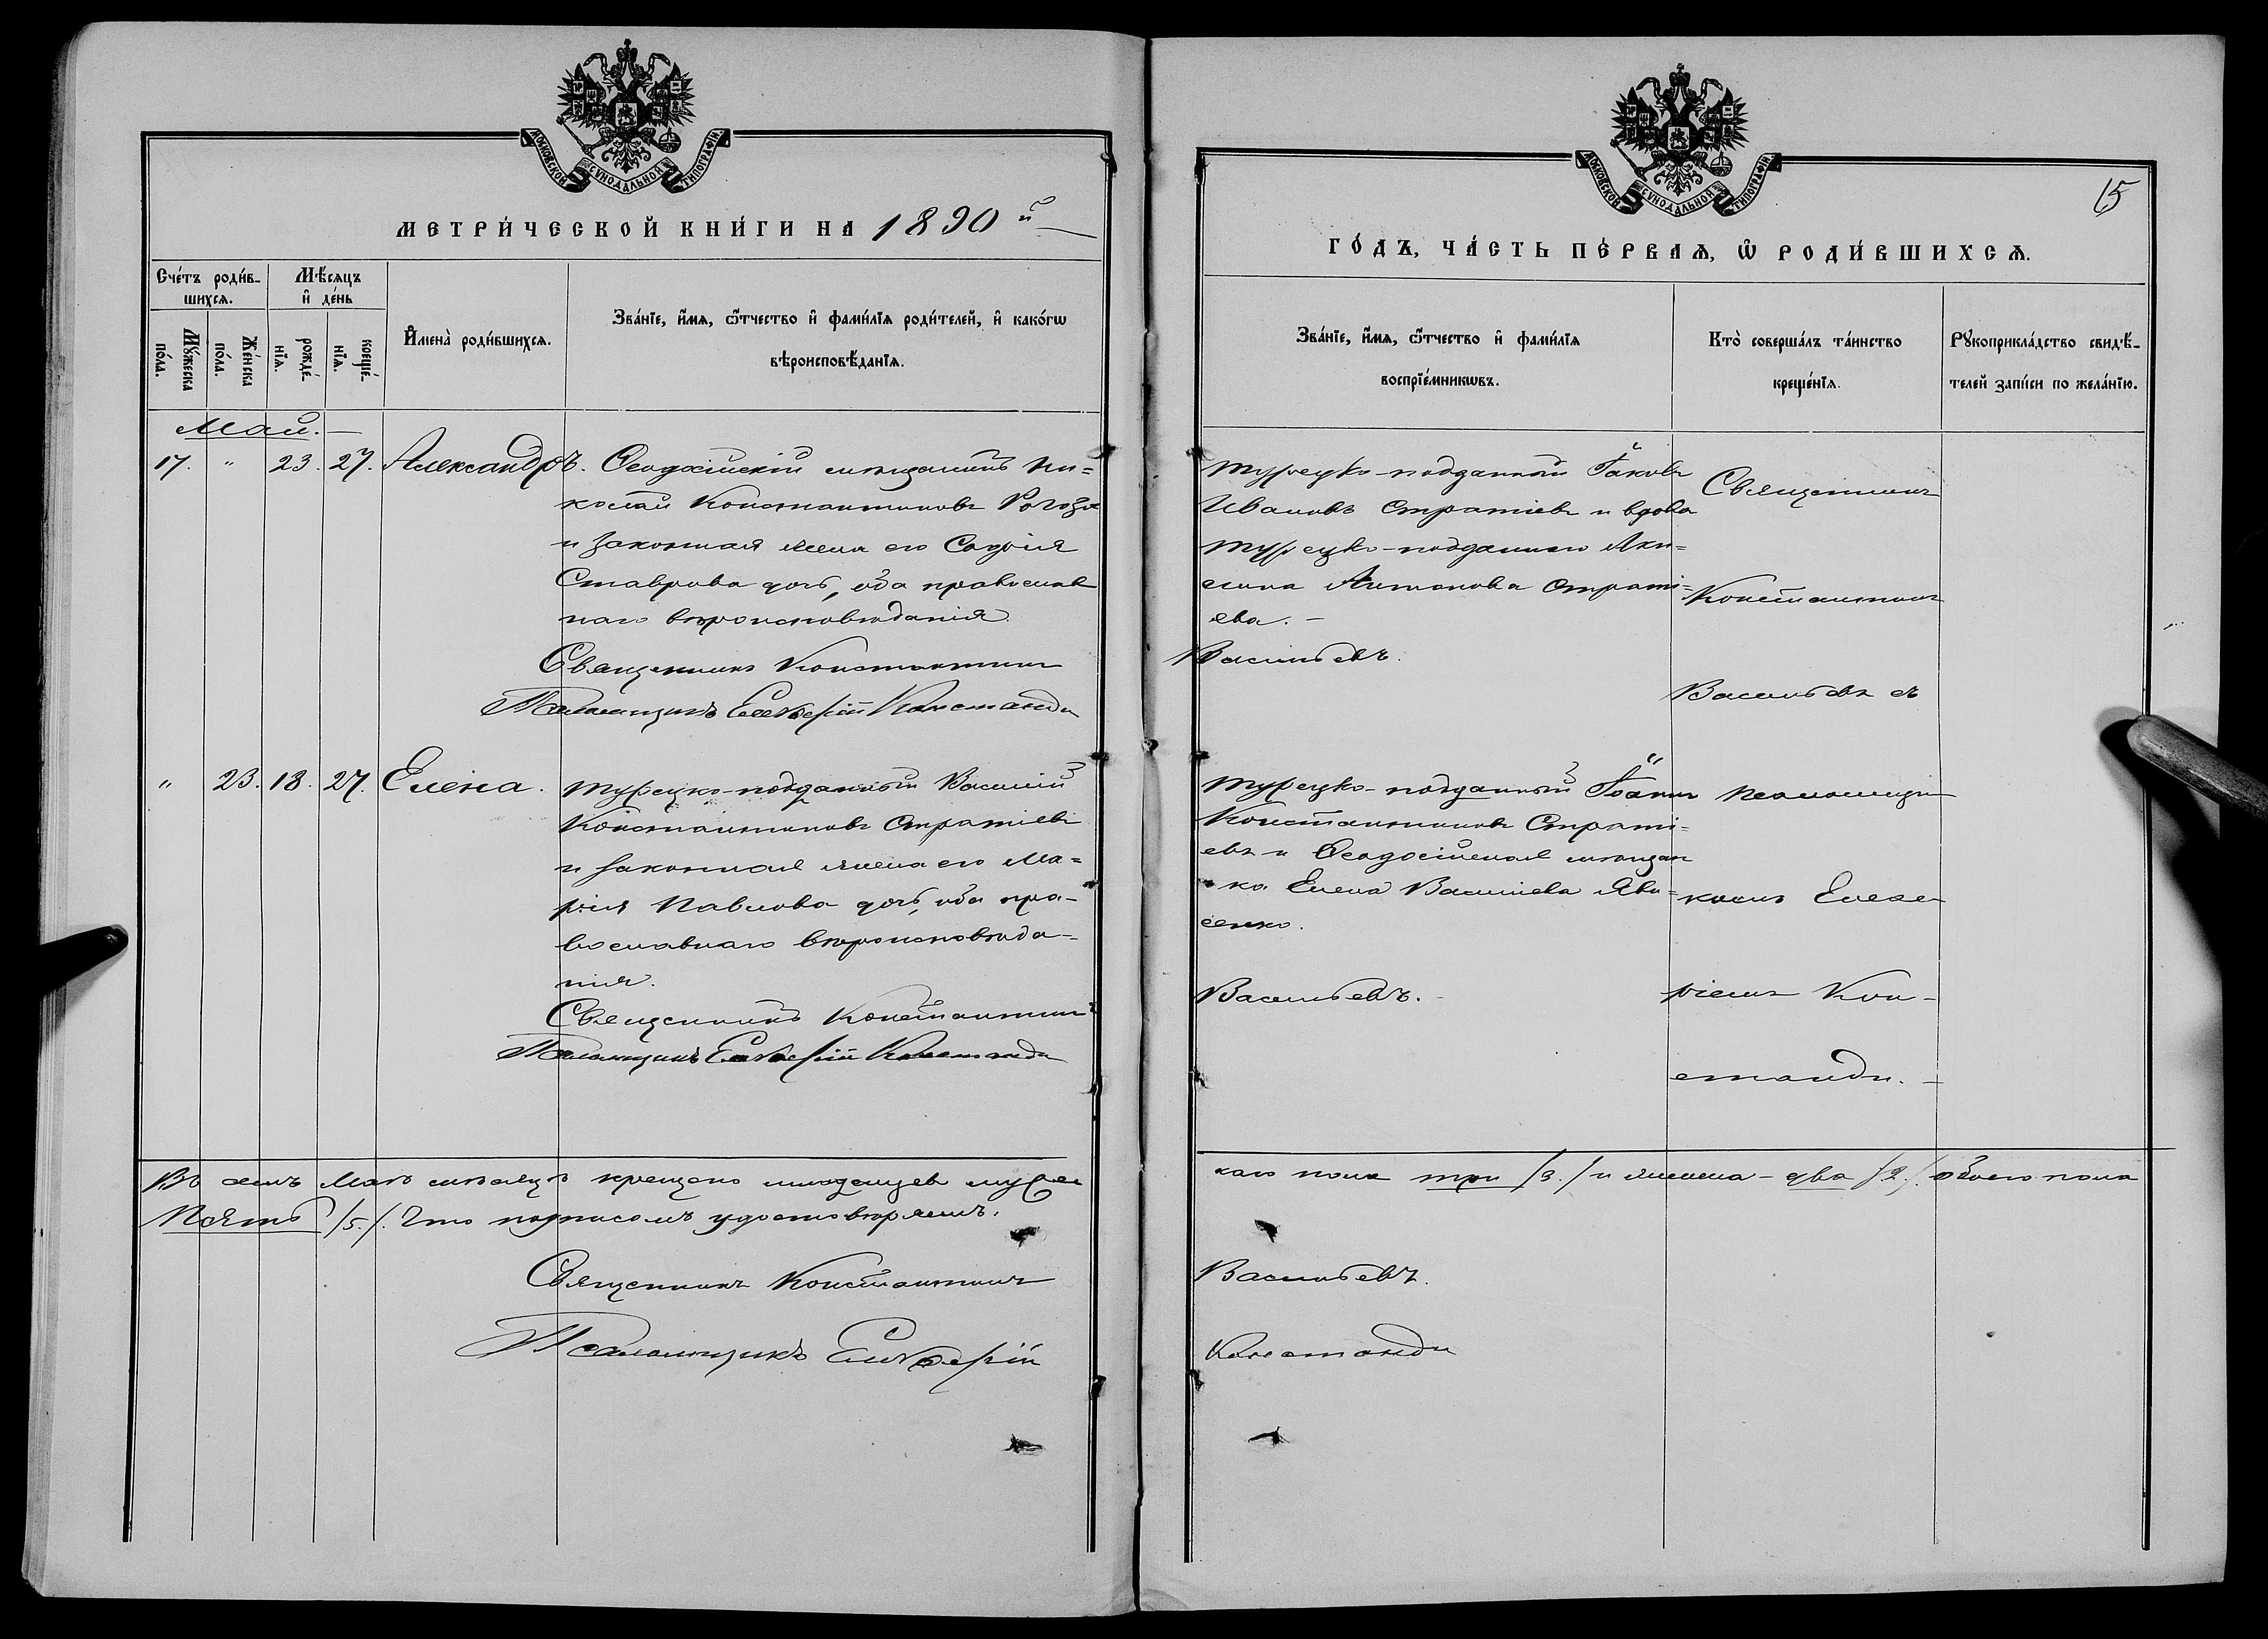 МОСКОВСКОЙ СѴНОДАЛЬНОЙ ТИПОГРАФІИ
МЕТРИ́ЧЕСКОЙ КНИ́ГИ НА 1890 й
Сче́тъ роди́в-
шихсѧ.
Мѣ́сѧцъ
и҆ де́нь
Мꙋ́жеска
по́ла.
Же́нска
по́ла.
рожде́-
нїѧ.
креще́-
нїѧ.
И҆мена̀ роди́вшихсѧ.
Зва́нїе, и҆́мѧ, ѻ҆́тчество и҆ фами́лїѧ роди́телей, и҆ како́гѡ
вѣроисповѣ́данїѧ.
Май.
17. " 23. 27. Александръ. Ѳеодосійскій мѣщанинъ Ни=
колай Константиновъ Рогозо
и законная жена его Софія
Ставрова дочь, оба православ
наго вѣроисповѣданія.
Священникъ Константинъ
Псаломщикъ Елевѳерій Константи
" 23. 18. 27. Елена. Турецко-подданный Василій
Константиновъ Стратіевъ
и законная жена его Ма=
рія Павлова дочь, оба пра-
вославнаго вѣроисповѣда-
нія.
Священникъ Константинъ
Псаломщикъ Елевѳерій Константи
Въ семъ Маѣ мѣсяцѣ крещено младенцевъ мужес
Пять /5./. Что подписомъ удостовѣряемъ.
Священникъ Константинъ
Псаломщикъ Елевѳерій
МОСКОВСКОЙ СѴНОДАЛЬНОЙ ТИПОГРАФІИ
15
ГО́ДЪ, ЧА́СТЬ ПЕ́РВАѦ, Ѿ РОДИ́ВШИХСѦ.
Зва́нїе, и҆́мѧ, ѻ҆́тчество и҆ фами́лїѧ
воспрїе́мникѡвъ.
Кто̀ соверша́лъ та́инство
креще́нїѧ.
Рꙋкоприкла́дство свидѣ́-
телей за́писи по жела́нїю.
Турецко-подданный Іаковъ
Ивановъ Стратіевъ и вдова
турецко-подданнаго Аки=
лина Антонова Страті=
ева. -
Васильевъ.
Священникъ
Константинъ
Васильевъ съ
Турецко-подданный Іоаннъ
Константиновъ Страті=
евъ и Ѳеодосійская мѣщан
ка Елена Васильева
Васильевъ.
псаломщи
комъ Елевѳе
ріемъ Кон-
станди. -
каго пола три /3./ и женска - два /2./. обоего пола
Васильевъ.
Константи